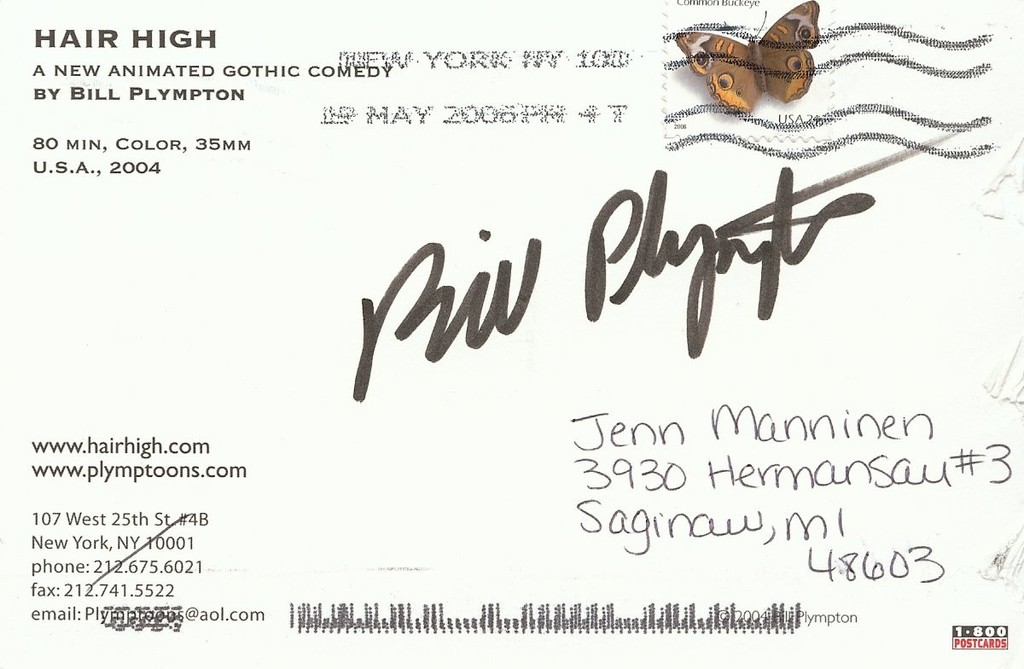 Common Buckeye
HAIR HIGH
A NEW ANIMATED GOTHIC COMEDY
BY BILL PLYMPTON
NEW YORK NY 100
19 MAY 2006 PM 4 T
USA 24
2006
80 MIN, COLOR, 35MM
U.S.A., 2004
Bill Plympton
Jenn Manninen
3930 Hermansau #3
Saginaw, MI
48603
www.hairhigh.com
www.plymptoons.com
107 West 25th St. #4B
New York, NY 10001
phone: 212.675.6021
fax: 212.741.5522
email: Plymptoons@aol.com
© 2004 Bill Plympton
1-800
POSTCARDS